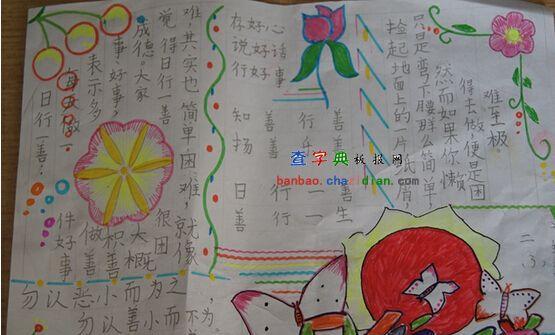 日行一善:
每天做 件好事
表示多做善
事、好事,积善
成德。大家大概
觉得日行一善很困
难其实也简单困难,就像
存好心
说好话
行好事
知善行善
扬善
日行一善
善行一生
捡起地面上的一片纸屑
只是弯下腰那么简单
然而如果你懒
得去做便是困
难至极
勿以恶小而为之
勿以善小而不为
查字典板报网
banbao.chazidian.com